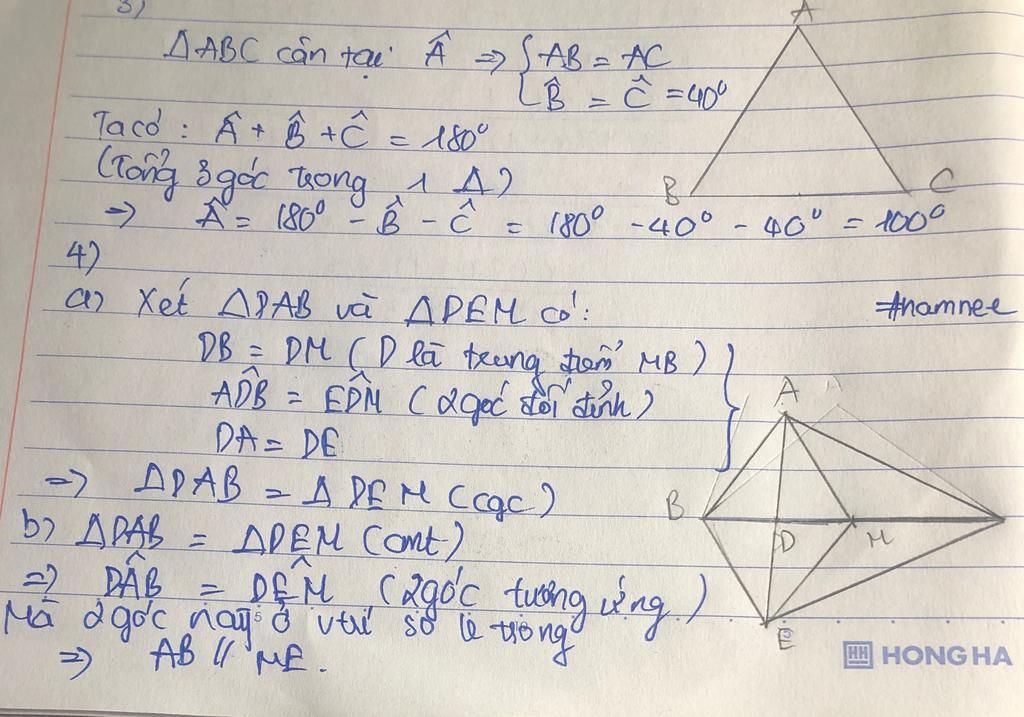 3)
ΔABC cân tại Â => { AB = AC
B̂ = Ĉ = 40⁰
Ta có : Â + B̂ + Ĉ = 180⁰
(Tổng 3 góc trong 1 Δ)
=> Â = 180⁰ - B̂ - Ĉ = 180⁰ - 40⁰ - 40⁰ = 100⁰
A
B
C
4)
a) Xét ΔDAB và ΔDEM có:
#namnee
DB = DM ( D là trung điểm MB )
AD̂B = ED̂M ( 2 góc đối đỉnh )
DA = DE
=> ΔDAB = ΔDEM (cgc)
b) ΔDAB = ΔDEM (cmt)
=> DÂB = DÊM (2 góc tương ứng)
Mà 2 góc này ở vtrí so le trong
=> AB // ME.
A
B
D
M
E
HH HONG HA